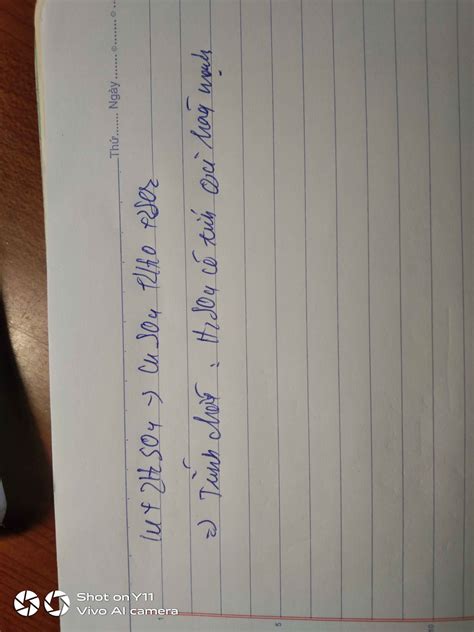 Thứ....... Ngày.......
Cu + 2H2SO4 → CuSO4 + 2H2O + SO2
=> Tính chất : H2SO4 có tính oxi hoá mạnh
Shot on Y11
Vivo AI camera
5
10